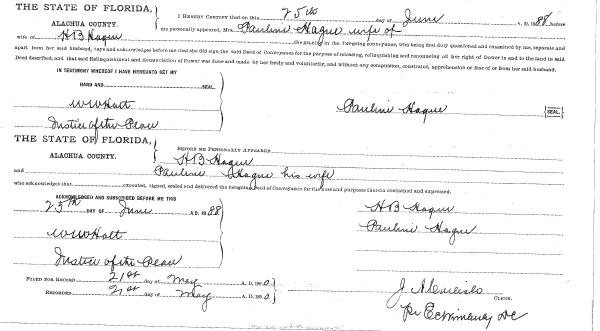 THE STATE OF FLORIDA,
ALACHUA COUNTY.
I HEREBY CERTIFY that on this 25th day of June A. D. 1888, before
me personally appeared, Mrs. Pauline Hague wife of
wife of H B Hague the grantor in the foregoing conveyance, who being first duly questioned and examined by me, separate and
apart from her said husband, says and acknowledges before me that she did sign the said Deed of Conveyance for the purpose of releasing, relinquishing and renouncing all her right of Dower in and to the land in said
Deed described, and that said Relinquishment and Renunciation of Dower was done and made by her freely and voluntarily, and without any compulsion, constraint, apprehension or fear of or from her said husband.
IN TESTIMONY WHEREOF I HAVE HEREUNTO SET MY
HAND AND SEAL.
W W Hatt
Justice of the Peace
Pauline Hague SEAL.
THE STATE OF FLORIDA,
ALACHUA COUNTY.
BEFORE ME PERSONALLY APPEARED
H B Hague
and Pauline Hague his wife
who acknowledges that executed, signed, sealed and delivered the foregoing Deed of Conveyance for the uses and purposes therein contained and expressed.
ACKNOWLEDGED AND SUBSCRIBED BEFORE ME THIS
25th DAY OF June A D. 1888
W W Hatt
Justice of the Peace
H B Hague
Pauline Hague
FILED FOR RECORD 21st day of May A. D. 1890
RECORDED 21st day of May A. D. 1890
J. A
CLERK.
Pr DC